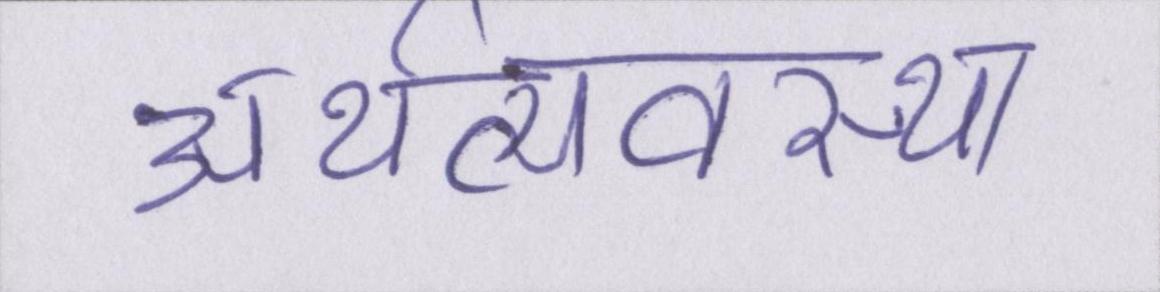 अर्थव्यवस्था